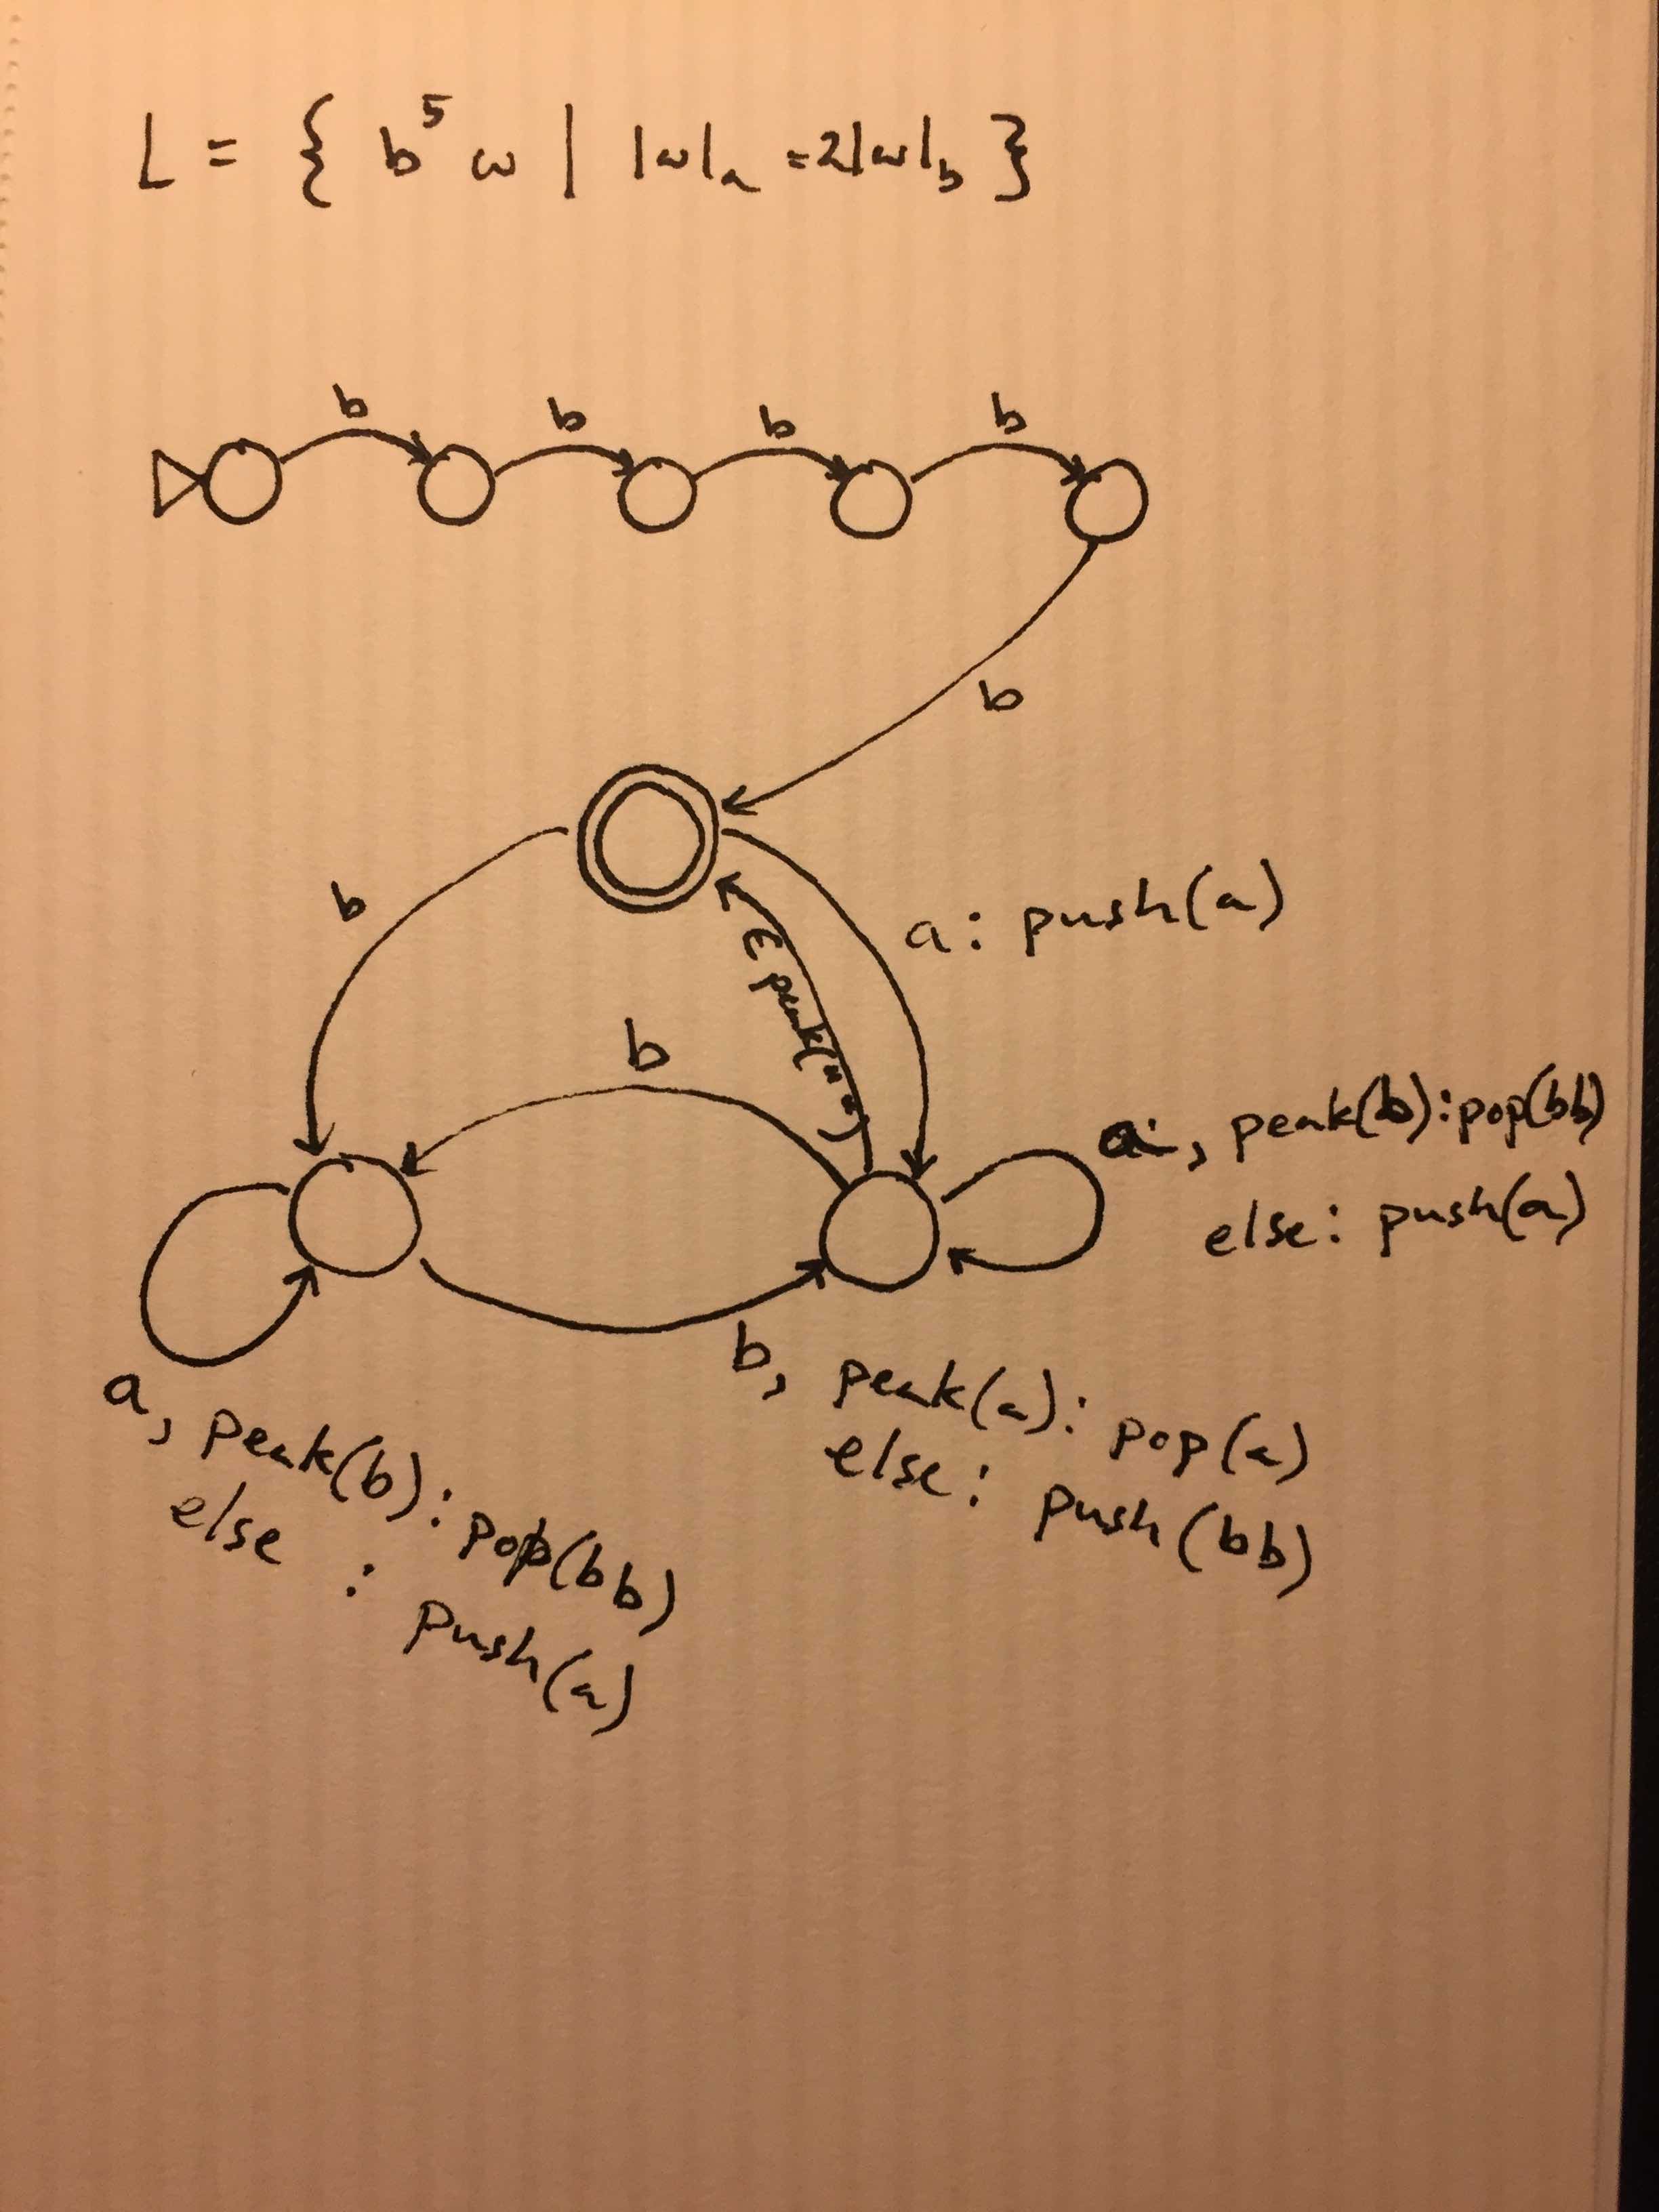 L = { b⁵ω | |ω|a = 2|ω|b }
b b b b
b
b
a: push(a)
ε peak("")
b
a, peak(b): pop(bb)
else: push(a)
b, peak(a): pop(a)
else: push(bb)
a, peak(b): pop(bb)
else : push(a)